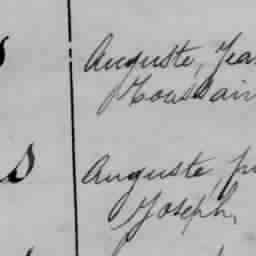 S Auguste, Jea
Toussain
S Auguste,
Joseph,